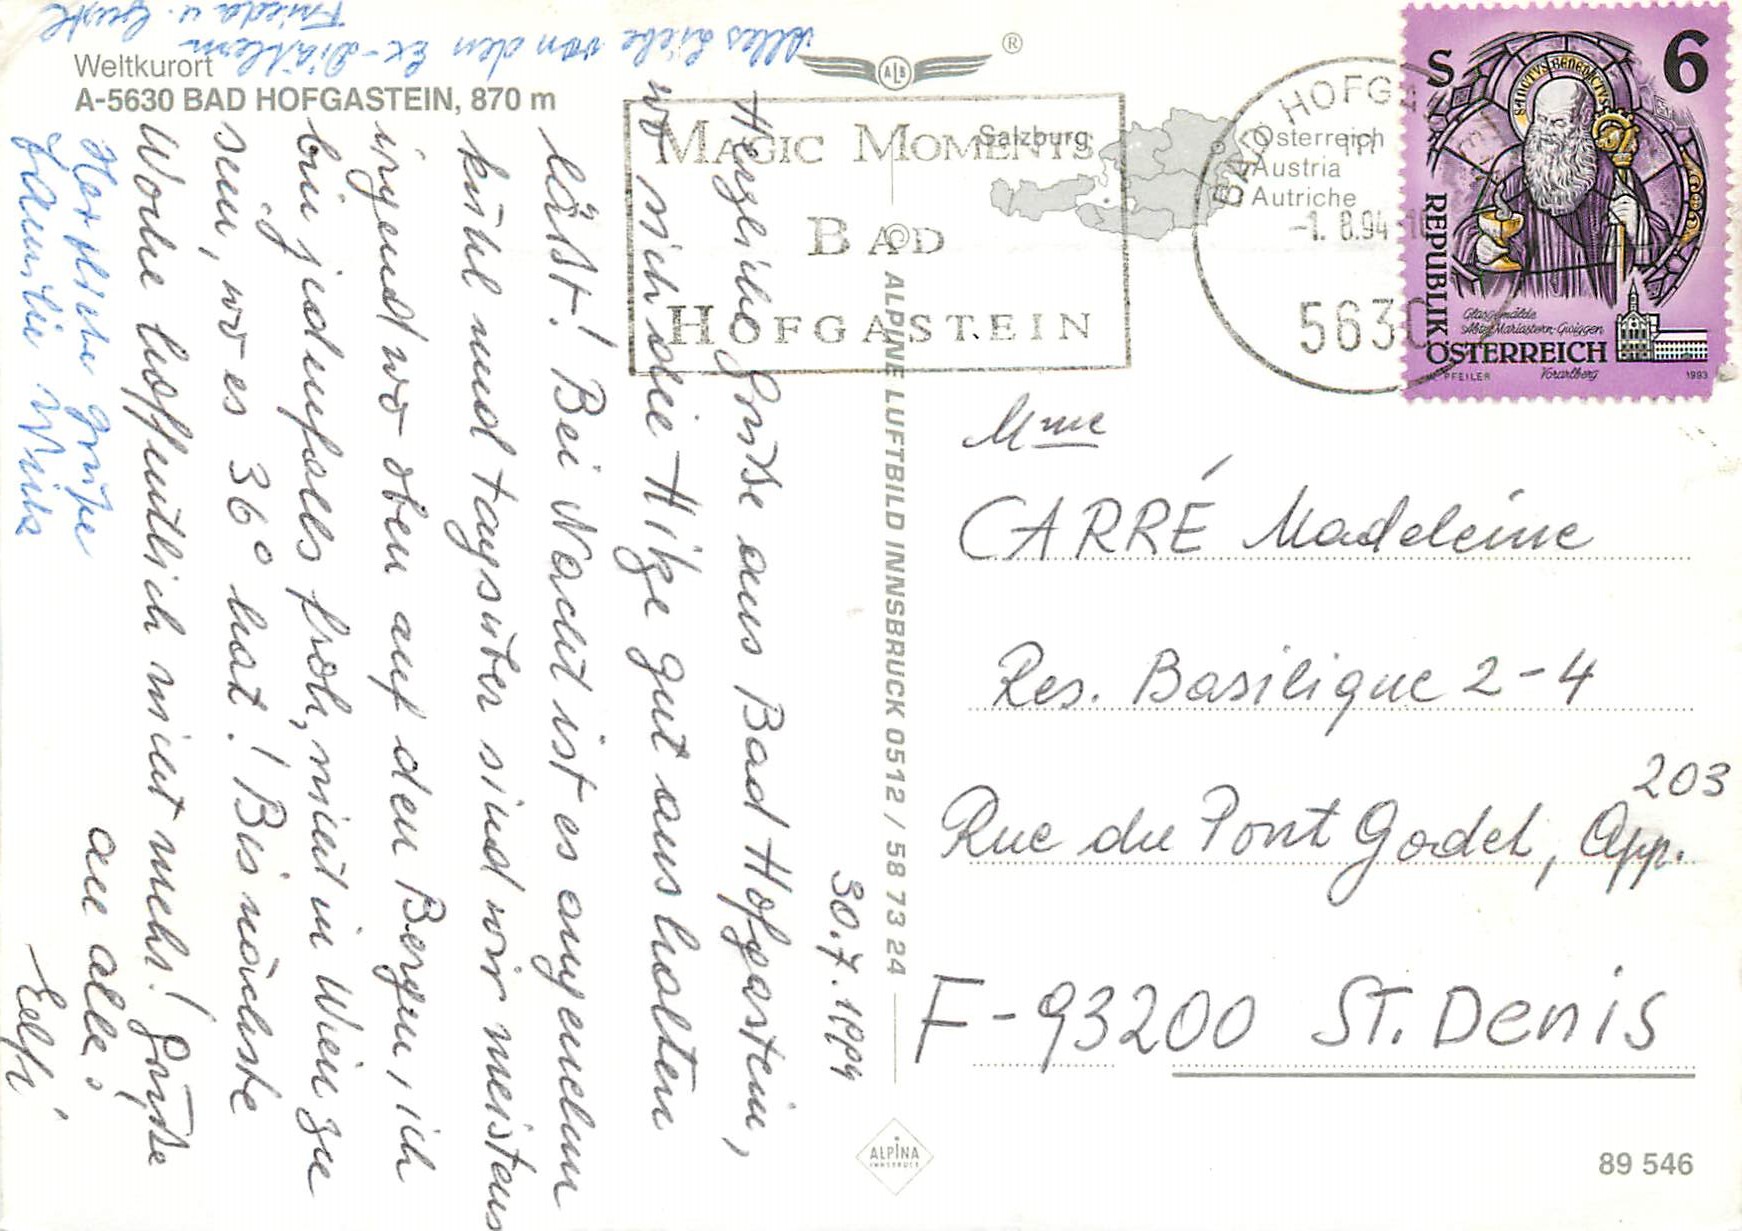 Weltkurort
A-5630 BAD HOFGASTEIN, 870 m
ALB
®
Salzburg
Österreich
Austria
Autriche
MAGIC MOMENTS
BAD
HOFGASTEIN
BAD HOFG
-1. 8.94
563
SANCTUS BENEDICTUS
S 6
REPUBLIK
ÖSTERREICH
Glasgemälde
Abtei Mariastern-Gwiggen
Vorarlberg
PFEILER
1993
ALPINE LUFTBILD INNSBRUCK 0512 / 58 73 24
30.7.1994
Herzliche Grüße aus Bad Hofgastein,
wo sich die Hitze gut aushalten
läßt! Bei Nacht ist es angenehm
kühl und tagsüber sind wir meistens
irgendwo oben auf den Bergen, ich
bin jedenfalls froh, nicht in Wien zu
sein, wo es 36° hat! Bis nächste
Woche hoffentlich nicht mehr! Grüße
an alle!
Elfi
Herzliche Grüße
Familie
Alles Liebe von den Ex-
Frieda u. Gustl
Mme
CARRÉ Madeleine
Res. Basilique 2-4
Rue du Pont Godet, App. 203
F-93200 ST. DENIS
ALPINA
INNSBRUCK
89 546